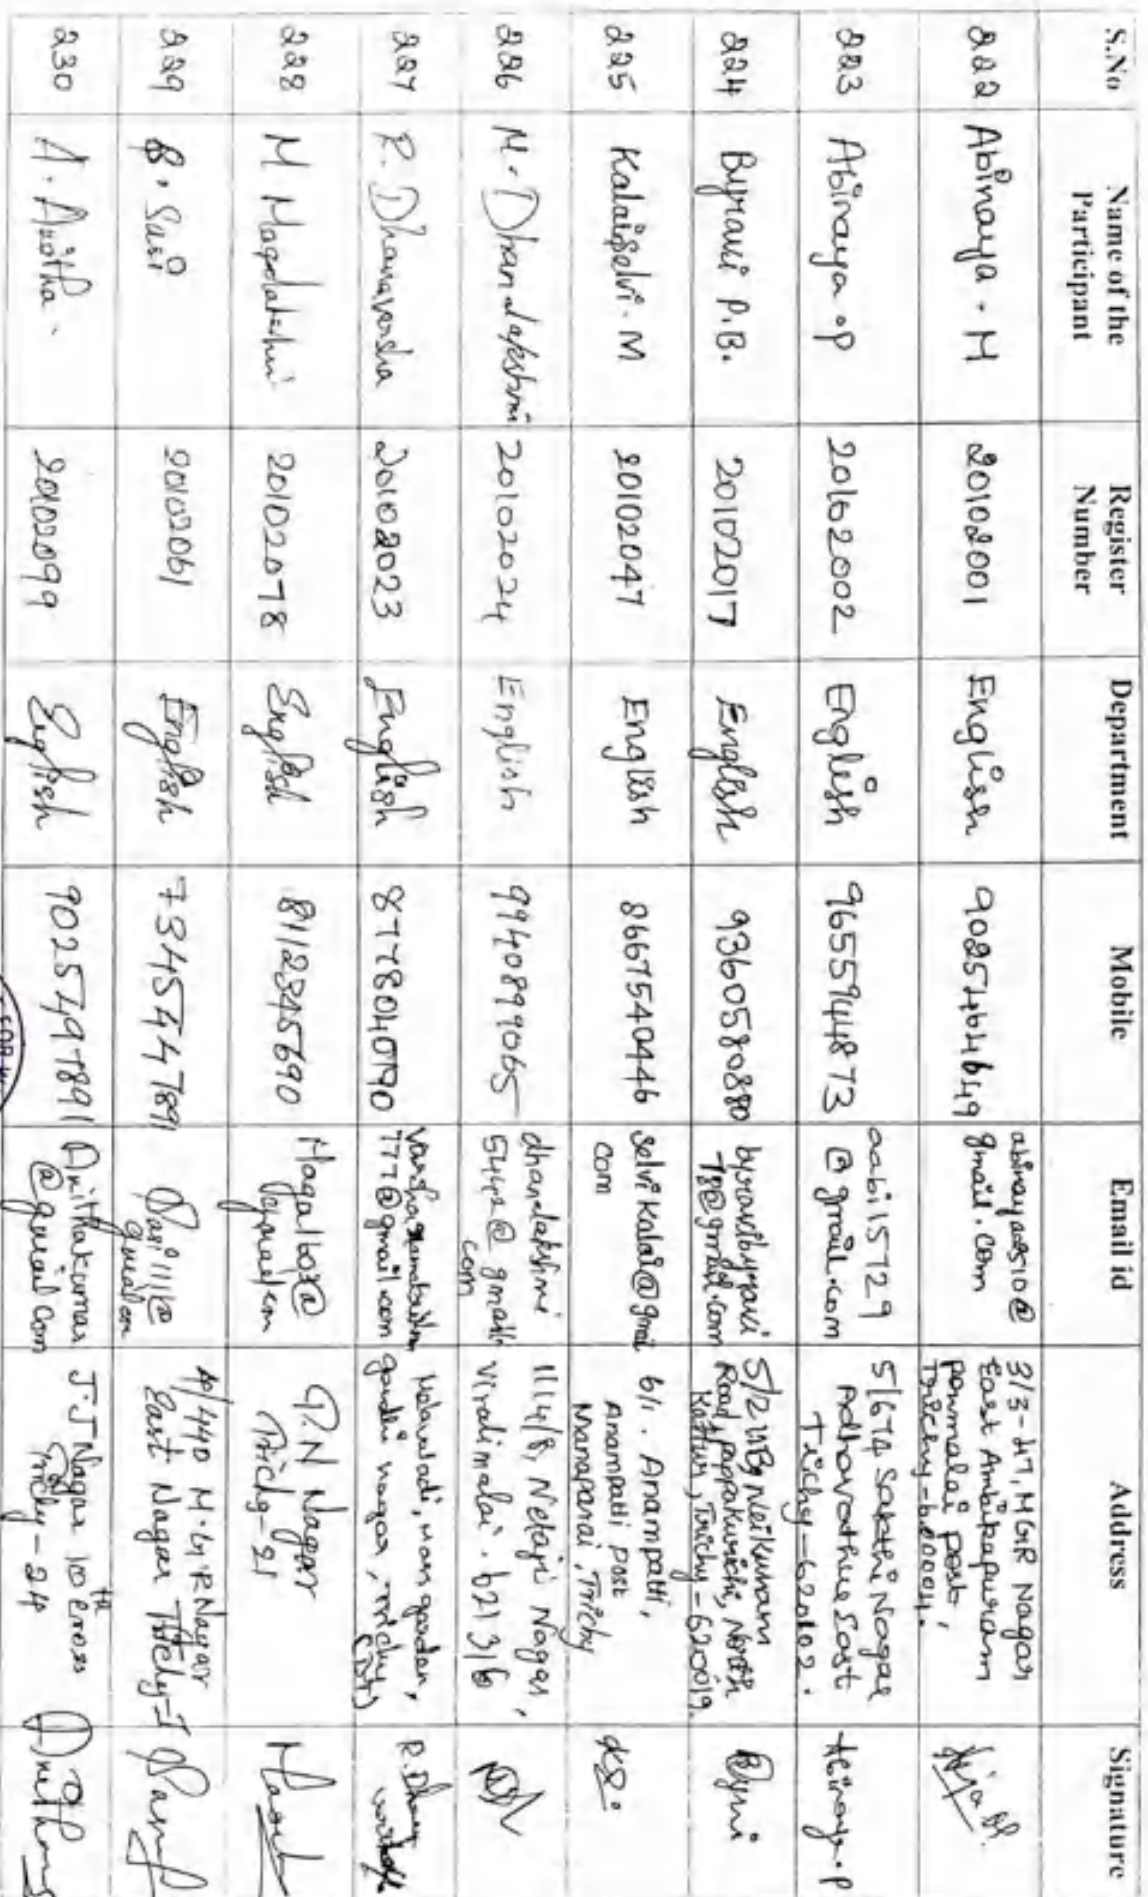 S.No Name of the Participant Register Number Department Mobile Email id Address Signature
222 Abinaya . M 20102001 English 9025464649 abinayaa2510@
gmail.com 3/3-47, MGR Nagar
East Ambikapuram
Ponmalai post,
Trichy-620004.
223 Abiraya .P 20102002 English 9655944873 aabi15729
@gmail.com 5/674 Sakthi Nagar
Adhavathur East
Trichy-620102. Abiraya.P
224 Byravi P.B. 20102017 English 9360580880 byravibyravi
78@gmail.com 5/211B, Neikulam
Road, Pappakurichi, North
Kattur, Trichy-620019.
225 Kalaiselvi. M 20102047 English 8667540446 selvikalai@gmai
com 6/1. Anampatti,
Anampatti post
Manaparai, Trichy
226 M. Dhanalakshmi 20102024 English 9940899065 dhanalakshmi
5442@gmail
com 11/4/8, Netaji Nagar,
Viralimalai. 621316
227 R. Dhanavarsha 20102023 English 8778040790
777@gmail.com gandhi nagar, Trichy
228 M Magalakshmi 20102078 English 8112345690 T.N Nagar
Trichy-21
229 S. Sasi 20102061 English 7345447891 Sasi1111@
gmail.com 4/440 M.G.R Nagar
East Nagar Trichy-1
230 A. Anitha. 20102099 English 9025497891 Anithakumar
@gmail com J.J Nagar 10th cross
Trichy-24